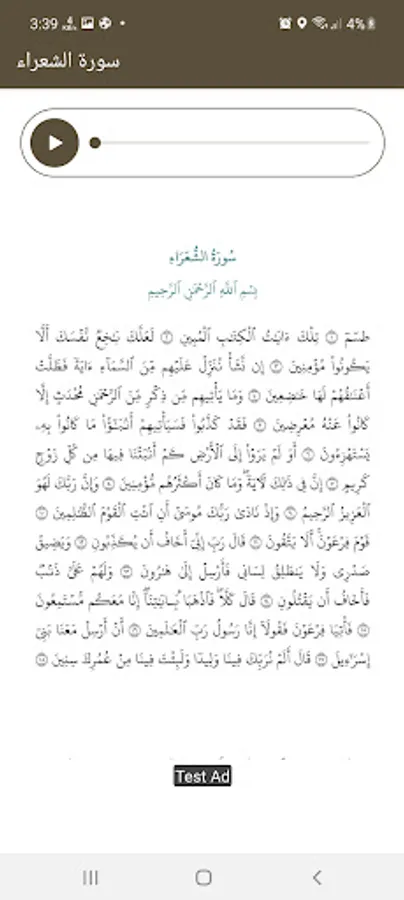 3:39
4%
سورة الشعراء
سُورَةُ الشُّعَرَاءِ
بِسْمِ ٱللَّهِ ٱلرَّحْمَٰنِ ٱلرَّحِيمِ
طسٓمٓ ۝١ تِلْكَ ءَايَٰتُ ٱلْكِتَٰبِ ٱلْمُبِينِ ۝٢ لَعَلَّكَ بَٰخِعٌ نَّفْسَكَ أَلَّا
يَكُونُوا۟ مُؤْمِنِينَ ۝٣ إِن نَّشَأْ نُنَزِّلْ عَلَيْهِم مِّنَ ٱلسَّمَآءِ ءَايَةً فَظَلَّتْ
أَعْنَٰقُهُمْ لَهَا خَٰضِعِينَ ۝٤ وَمَا يَأْتِيهِم مِّن ذِكْرٍ مِّنَ ٱلرَّحْمَٰنِ مُحْدَثٍ إِلَّا
كَانُوا۟ عَنْهُ مُعْرِضِينَ ۝٥ فَقَدْ كَذَّبُوا۟ فَسَيَأْتِيهِمْ أَنۢبَٰٓؤُا۟ مَا كَانُوا۟ بِهِۦ
يَسْتَهْزِءُونَ ۝٦ أَوَ لَمْ يَرَوْا۟ إِلَى ٱلْأَرْضِ كَمْ أَنۢبَتْنَا فِيهَا مِن كُلِّ زَوْجٍ
كَرِيمٍ ۝٧ إِنَّ فِى ذَٰلِكَ لَءَايَةً ۖ وَمَا كَانَ أَكْثَرُهُم مُّؤْمِنِينَ ۝٨ وَإِنَّ رَبَّكَ لَهُوَ
ٱلْعَزِيزُ ٱلرَّحِيمُ ۝٩ وَإِذْ نَادَىٰ رَبُّكَ مُوسَىٰٓ أَنِ ٱئْتِ ٱلْقَوْمَ ٱلظَّٰلِمِينَ ۝١٠
قَوْمَ فِرْعَوْنَ ۚ أَلَا يَتَّقُونَ ۝١١ قَالَ رَبِّ إِنِّىٓ أَخَافُ أَن يُكَذِّبُونِ ۝١٢ وَيَضِيقُ
صَدْرِى وَلَا يَنطَلِقُ لِسَانِى فَأَرْسِلْ إِلَىٰ هَٰرُونَ ۝١٣ وَلَهُمْ عَلَىَّ ذَنۢبٌ
فَأَخَافُ أَن يَقْتُلُونِ ۝١٤ قَالَ كَلَّا ۖ فَٱذْهَبَا بِـَٔايَٰتِنَآ ۖ إِنَّا مَعَكُم مُّسْتَمِعُونَ
۝١٥ فَأْتِيَا فِرْعَوْنَ فَقُولَآ إِنَّا رَسُولُ رَبِّ ٱلْعَٰلَمِينَ ۝١٦ أَنْ أَرْسِلْ مَعَنَا بَنِىٓ
إِسْرَٰٓءِيلَ ۝١٧ قَالَ أَلَمْ نُرَبِّكَ فِينَا وَلِيدًا وَلَبِثْتَ فِينَا مِنْ عُمُرِكَ سِنِينَ ۝١٨
Test Ad